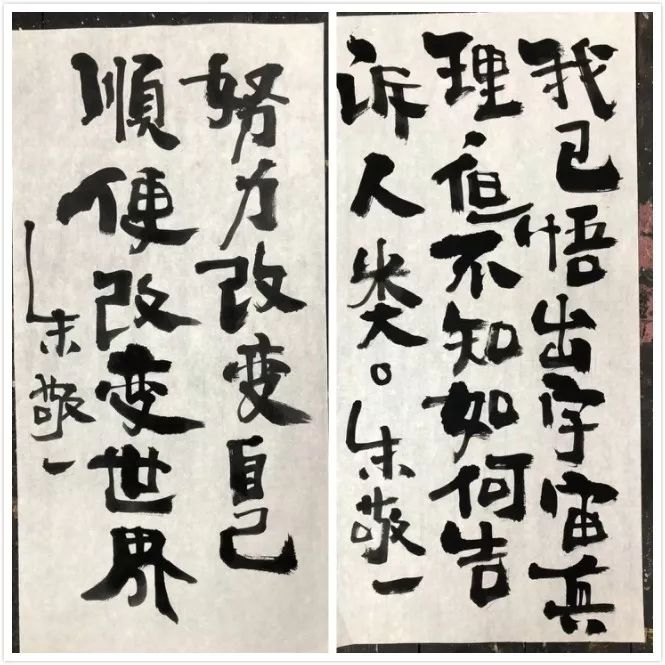 努力改变自己
順便改变世界
朱敬一
我已悟出宇宙真
理，但不知如何告
诉人类。朱敬一